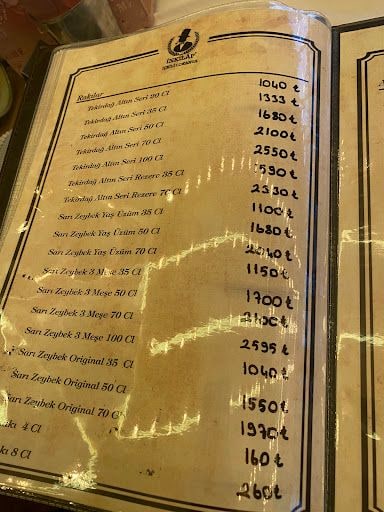 Rakılar
Tekirdağ Altın Seri 20 Cl 1040 ₺
Tekirdağ Altın Seri 35 Cl 1333 ₺
Tekirdağ Altın Seri 50 Cl 1680 ₺
Tekirdağ Altın Seri 70 Cl 2100 ₺
Tekirdağ Altın Seri 100 Cl 2550 ₺
Tekirdağ Altın Seri Rezerv 35 Cl 1590 ₺
Tekirdağ Altın Seri Rezerv 70 Cl 2330 ₺
Sarı Zeybek Yaş Üzüm 35 Cl 1100 ₺
Sarı Zeybek Yaş Üzüm 50 Cl 1680 ₺
Sarı Zeybek Yaş Üzüm 70 Cl 2040 ₺
Sarı Zeybek 3 Meşe 35 Cl 1150 ₺
Sarı Zeybek 3 Meşe 50 Cl 1700 ₺
Sarı Zeybek 3 Meşe 70 Cl 2100 ₺
Sarı Zeybek 3 Meşe 100 Cl 2595 ₺
Sarı Zeybek Original 35 Cl 1040 ₺
Sarı Zeybek Original 50 Cl 1550 ₺
Sarı Zeybek Original 70 Cl 1970 ₺
4 Cl 160 ₺
8 Cl 260 ₺